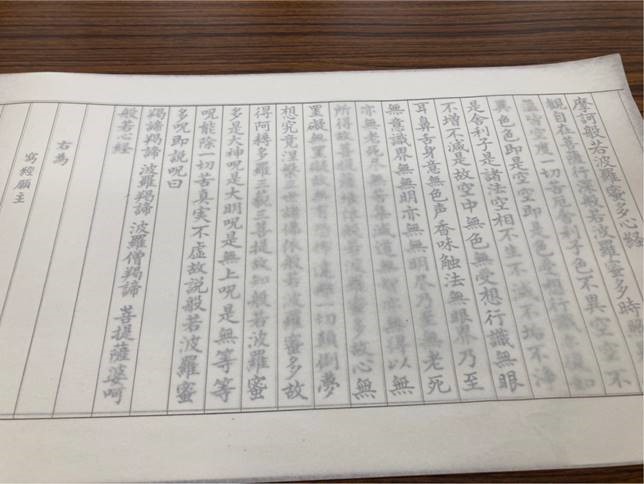 摩訶般若波羅蜜多心経
観自在菩薩行深般若波羅蜜多時
皆空度一切苦厄舎利子色不異空空不
異色色即是空空即是色受想行識亦復如
是舎利子是諸法空相不生不滅不垢不浄
不増不減是故空中無色無受想行識無眼
耳鼻舌身意無色声香味触法無眼界乃至
無意識界無無明亦無無明尽乃至無老死
亦無老死尽無苦集滅道無智亦無得以無
所得故菩提薩埵依般若波羅蜜多故心無
罣礙無罣礙故無有恐怖遠離一切顛倒夢
想究竟涅槃三世諸佛依般若波羅蜜多故
得阿耨多羅三藐三菩提故知般若波羅蜜
多是大神呪是大明呪是無上呪是無等等
呪能除一切苦真実不虚故説般若波羅蜜
多呪即説呪曰
羯諦羯諦 波羅羯諦 波羅僧羯諦 菩提薩婆訶
般若心経
右為
寫経願主